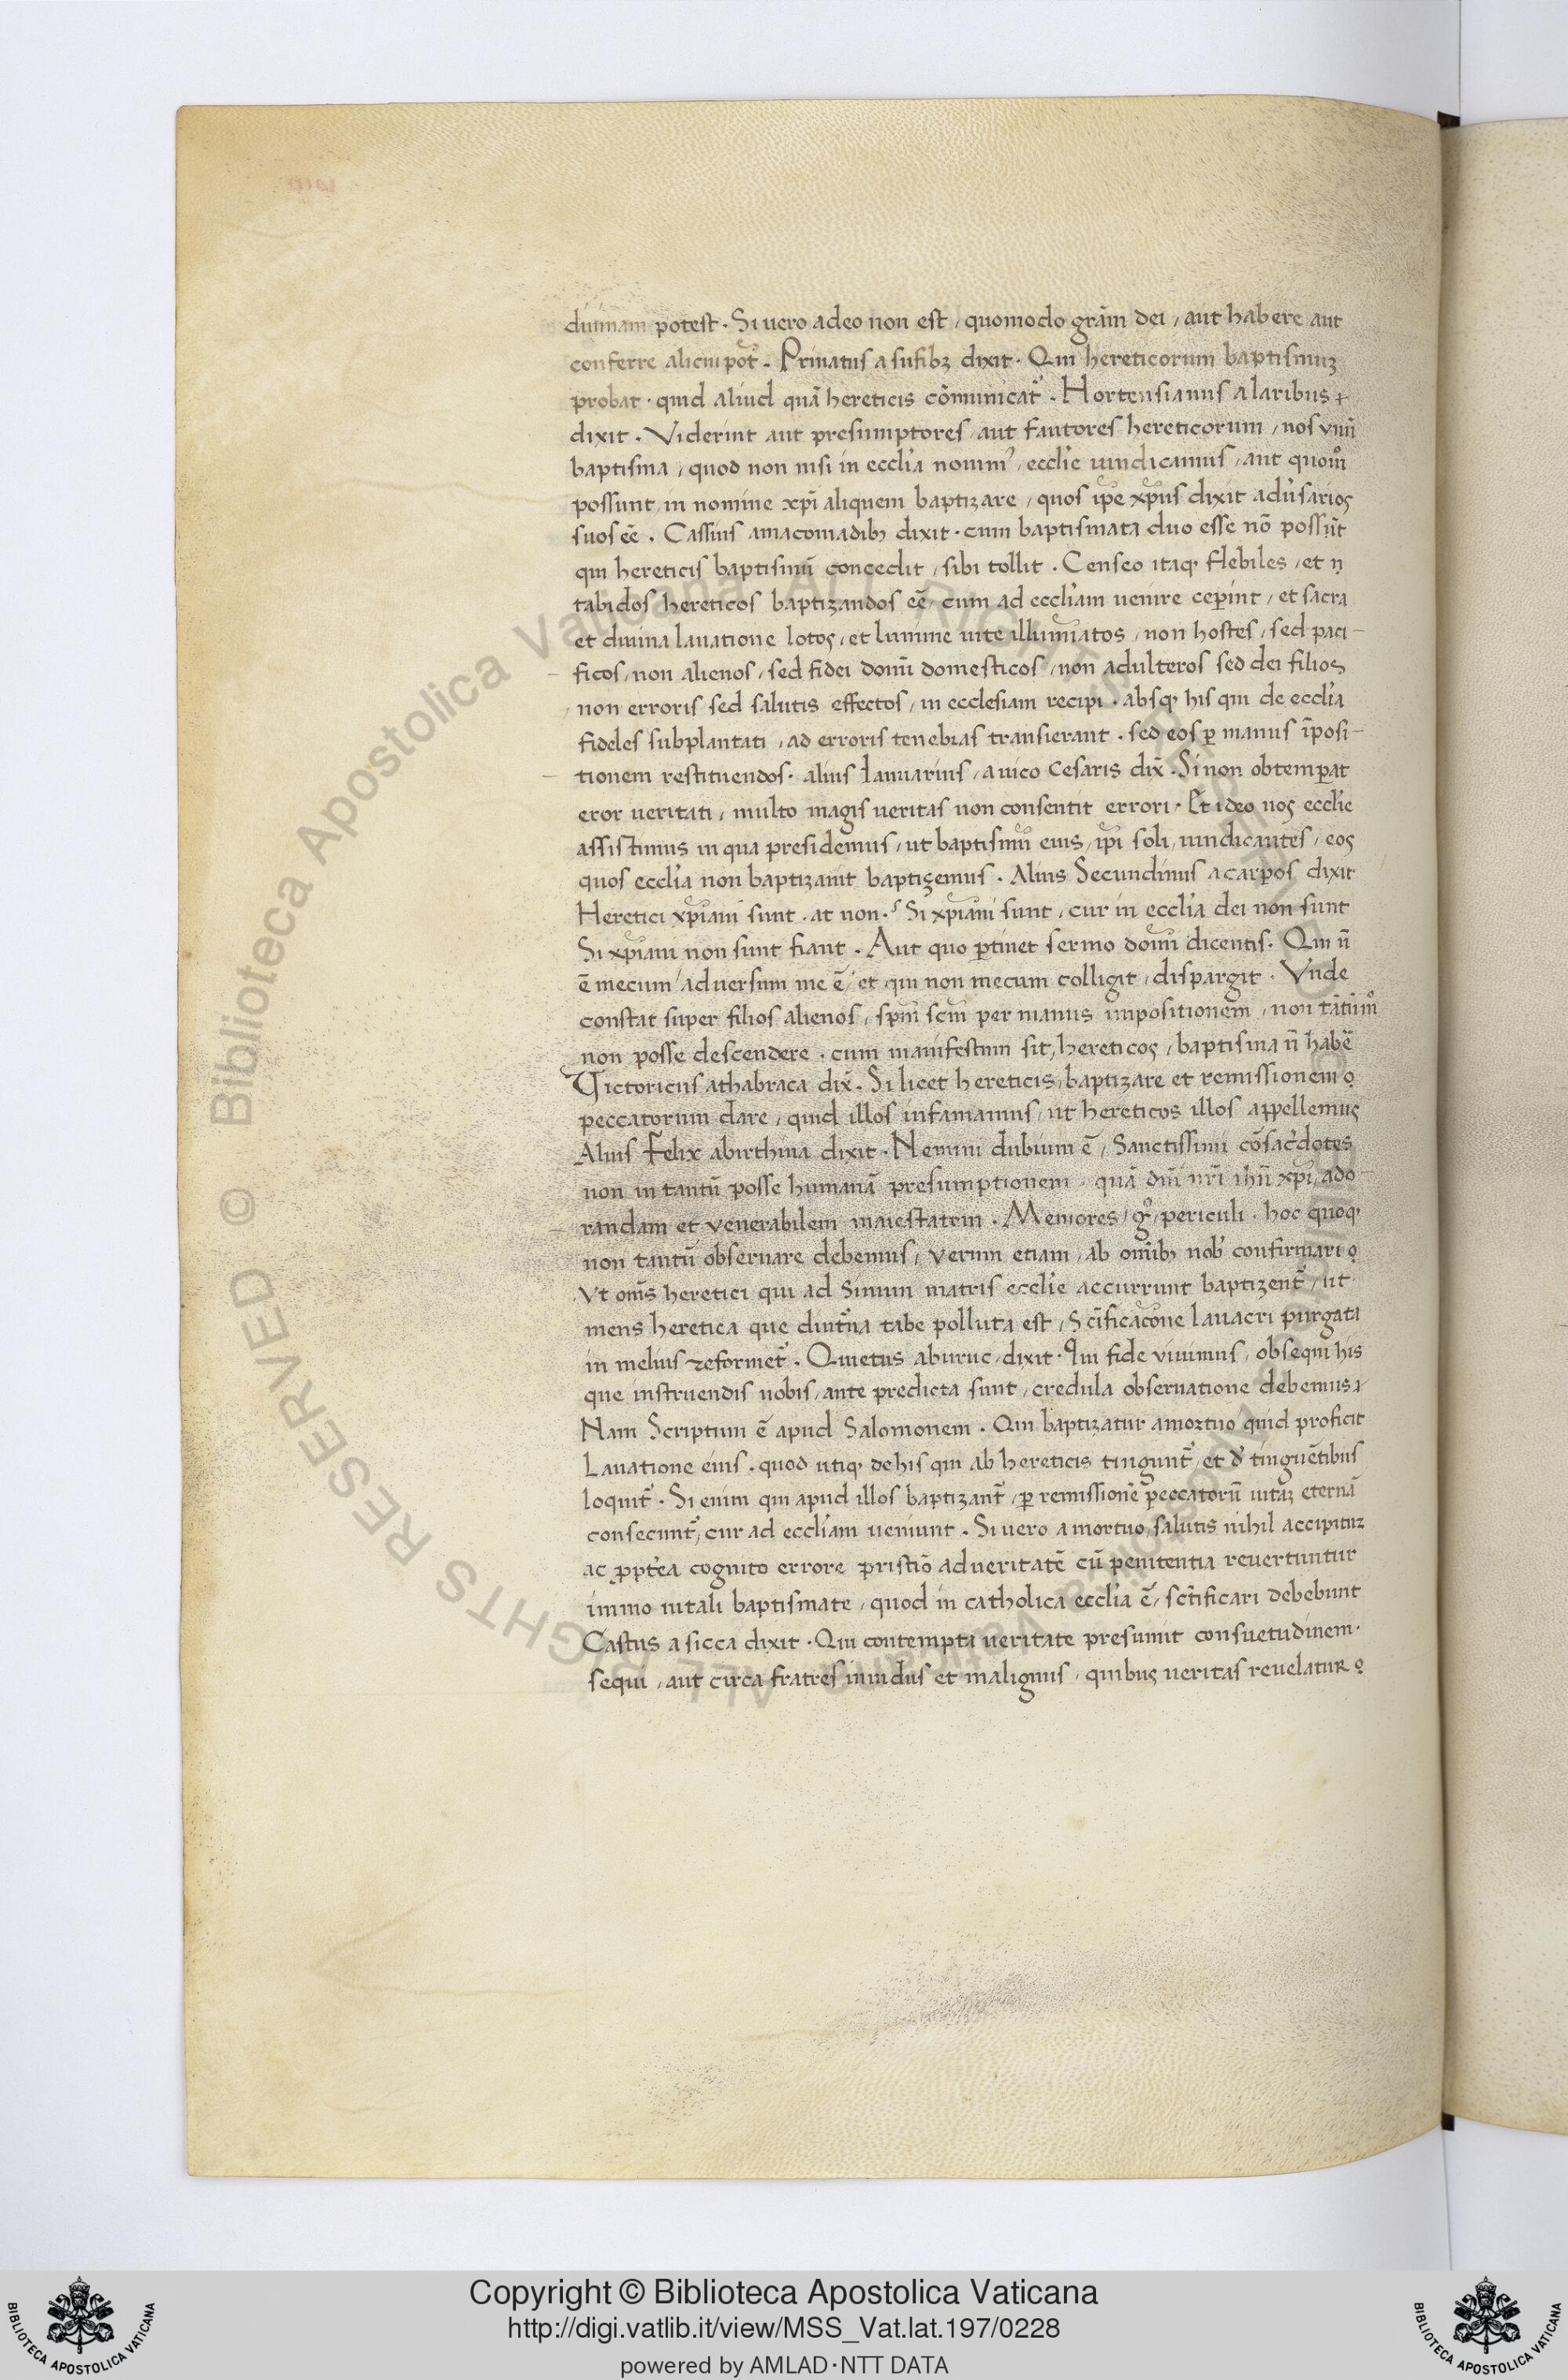 diuinam potest . Si uero a deo non est , quomodo gr̃am dei , aut habere aut
conferre alicui pot̃ . Priuatus a sufibꝫ dixit . Qui hereticorum baptismuꝫ
probat . quid aliud quã hereticis cõmunicat̃ . Hortensianus a laribus
dixit . Viderint aut presumptores , aut fautores hereticorum , nos vnũ
baptisma , quod non nisi in eccl̃ia nouim᾽ , eccl̃ie uindicamus , aut quom̊
possunt , in nomine xp̃i aliquem baptizare , quos ip̃e xp̃us dixit adũsarios
suos eẽ . Cassius amacomadibꝫ dixit . cum baptismata duo esse nõ possũt
qui hereticis baptismũ concedit , sibi tollit . Censeo itaqꝫ flebiles , et
tabidos hereticos baptizandos eẽ , cum ad eccl̃iam uenire cep̃int , et sacra
et diuina lauatione lotos , et lumine uite illumiatos , non hostes , sed paci-
ficos , non alienos , sed fidei domĩ domesticos , non adulteros sed dei filios
non erroris sed salutis effectos , in ecclesiam recipi . absqꝫ his qui de eccl̃ia
fideles subplantati , ad erroris tenebras transierant . sed eos ꝑ manus ĩposi-
tionem restituendos . alius Ianuarius , a uico Cesaris dix̃ . Si non obtemꝑat
eror ueritati , multo magis ueritas non consentit errori . Et ideo nos eccl̃ie
assistimus in qua presidemus , ut baptismũ eius , ip̃i soli , uindicantes , eos
quos eccl̃ia non baptizauit baptizemus . Alius Secundinus a carpos dixit
Heretici xp̃iani sunt . at non . Si xp̃iani sunt , cur in eccl̃ia dei non sunt
Si xp̃iani non sunt fiant . Aut quo ꝑtinet sermo domĩ dicentis . Qui ñ
ẽ mecum , aduersum me ẽ , et qui non mecum colligit , dispargit . Vnde
constat super filios alienos , sp̃m sc̃m per manus impositionem , non tãtũm̊
non posse descendere . cum manifestum sit , hereticos , baptisma ñ habẽ
Victoricus athabraca dix̃ . Si licet hereticis , baptizare et remissionem
peccatorum dare , quid illos infamamus , ut hereticos illos appellemus
Alius Felix abirthina dixit . Nemini dubium ẽ , Sanctissimi cõsac̃dotes
non in tantũ posse humanã presumptionem , quã dñi nr̃i ihũ xp̃i , ado
randam et venerabilem maiestatem . Memores , g̊ , periculi . hoc quoqꝫ
non tantũ obseruare debemus , verum etiam , ab om̃ibꝫ nob̃ confirmari
Vt om̃s heretici qui ad sinum matris eccl̃ie accurrunt baptizent̃ , ut
mens heretica que diut̃na tabe polluta est , Sc̃ificac̃one lauacri purgata
in melius reformet̃ . Quietus aburuc , dixit . Qui fide viuimus , obsequi his
que instruendis nobis , ante predicta sunt , credula obseruatione debemus
Nam Scriptum ẽ apud Salomonem . Qui baptizatur a mortuo quid proficit
Lauatione eius . quod utiqꝫ de his qui ab hereticis tingunt̃ , et d̃ tinguẽtibus
loquit̃ . Si enim qui apud illos baptizant̃ , ꝑ remissionẽ peccatorũ uitaꝫ eternã
consecunt̃ , cur ad eccl̃iam ueniunt . Si uero a mortuo , salutis nihil accipitur
ac ꝓpt̃ea cognito errore pristiõ ad ueritatẽ cũ penitentia reuertuntur
immo uitali baptismate , quod in catholica eccl̃ia ẽ , sc̃tificari debebunt
Castus a sicca dixit . Qui contempta ueritate presumit consuetudinem .
sequi , aut circa fratres inuidus et malignus , quibus ueritas reuelatur
Copyright © Biblioteca Apostolica Vaticana
http://digi.vatlib.it/view/MSS_Vat.lat.197/0228
powered by AMLAD·NTT DATA